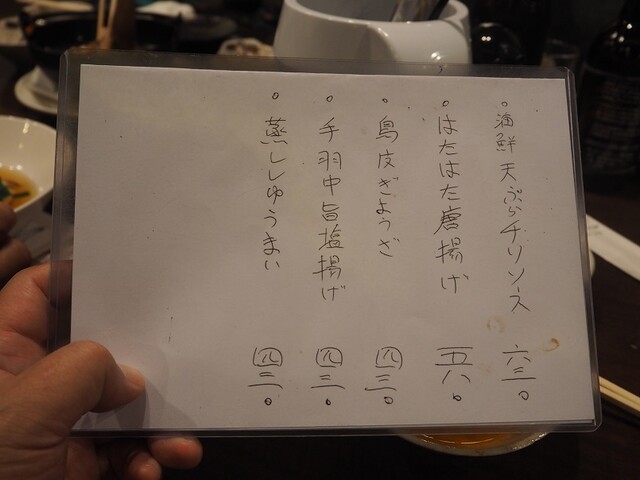 。海鮮天ぷらチリソース 六三〇
。はたはた唐揚げ 五八〇
。鳥皮ぎょうざ 四三〇
。手羽中旨塩揚げ 四三〇
。蒸ししゅうまい 四三〇